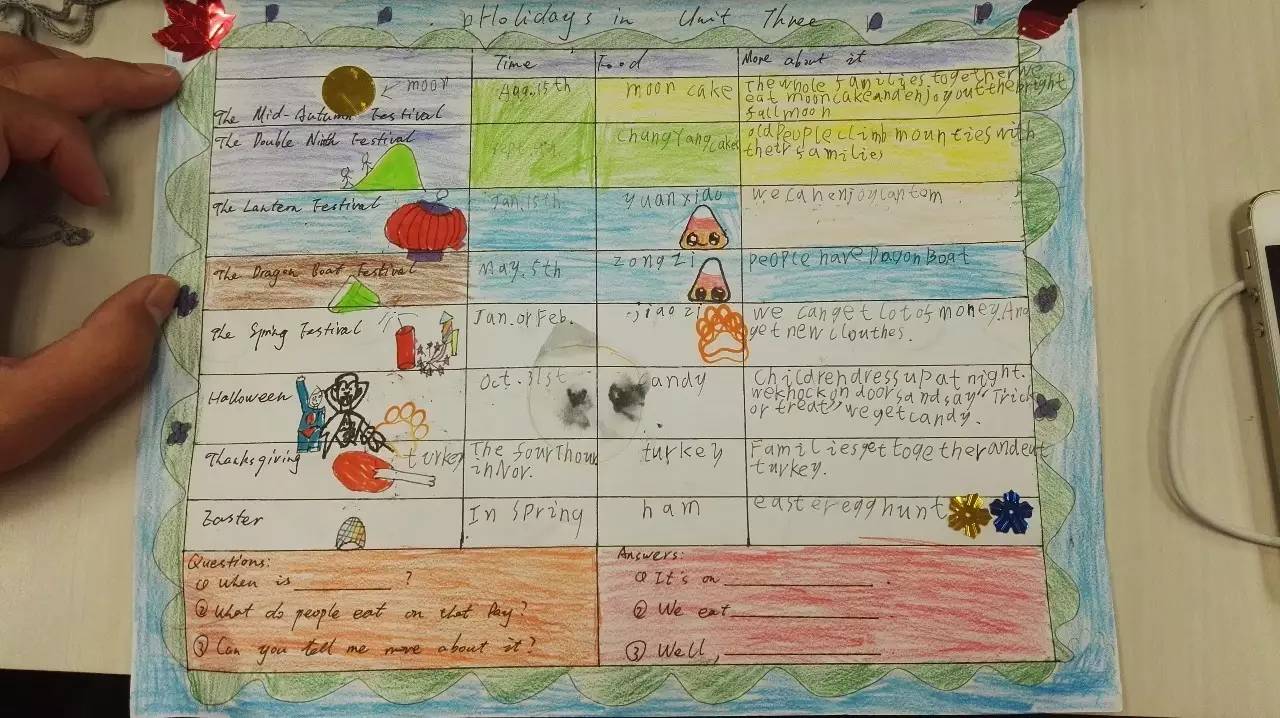 Holidays in Unit Three
Time Food More about it
moon
The Mid-Autumn Festival
Aug.15th
moon cake
The whole families together we
eat mooncake and enjoy out the bright
full moon
The Double Ninth Festival
Sept.9th
chang yang cakes
old people climb mounties with
their families
The Lantern Festival
Jan.15th
yuanxiao
we can enjoy lantom
The Dragon Boat Festival
May.5th
zongzi
people have Dagon Boat
The Spring Festival
Jan.or Feb.
jiaozi
we can get lot of money.And
get new clouthes.
Halloween
Oct.31st
candy
Children dress up at night.
we knock on doors and say "Trick
or treat" we get candy.
Thanksgiving
turkey
The fourth
in Nov.
turkey
Families get together and eat
turkey.
Easter
In spring
ham
easter egg hunt
Questions:
① When is ________?
② What do people eat on that Day?
③ Can you tell me more about it?
Answers:
① It's on ________.
② We eat ________
③ Well, ________